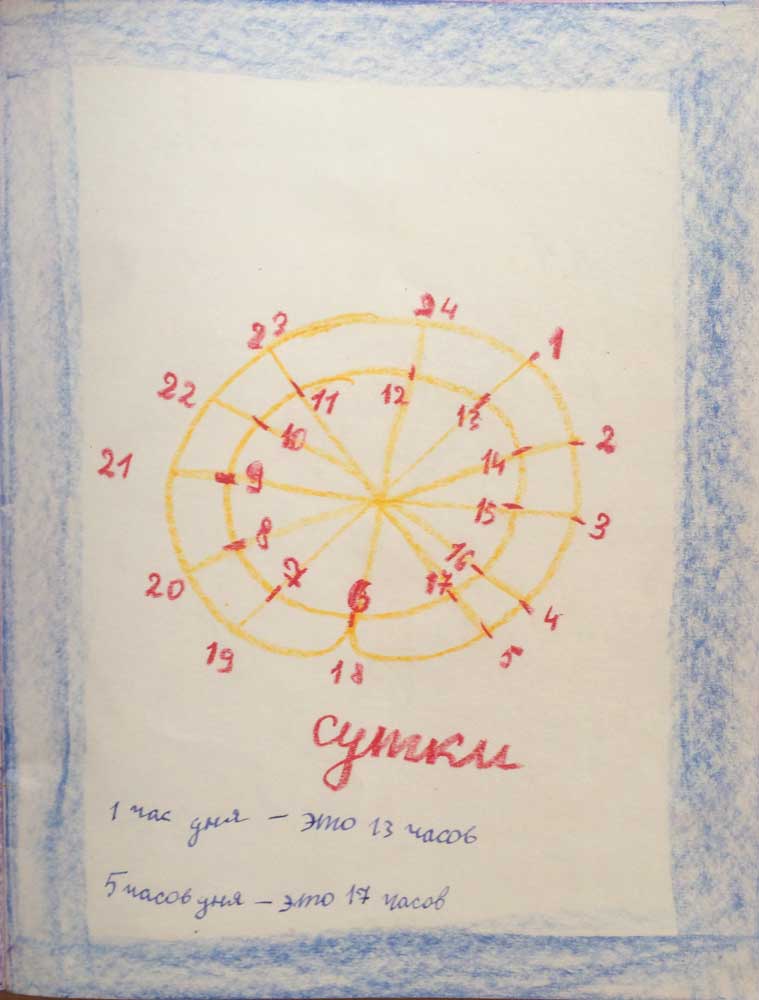 24
23
1
22
11
12
13
2
10
14
21
9
15
3
8
16
20
7
6
17
4
19
18
5
сутки
1 час дня – это 13 часов
5 часов дня – это 17 часов